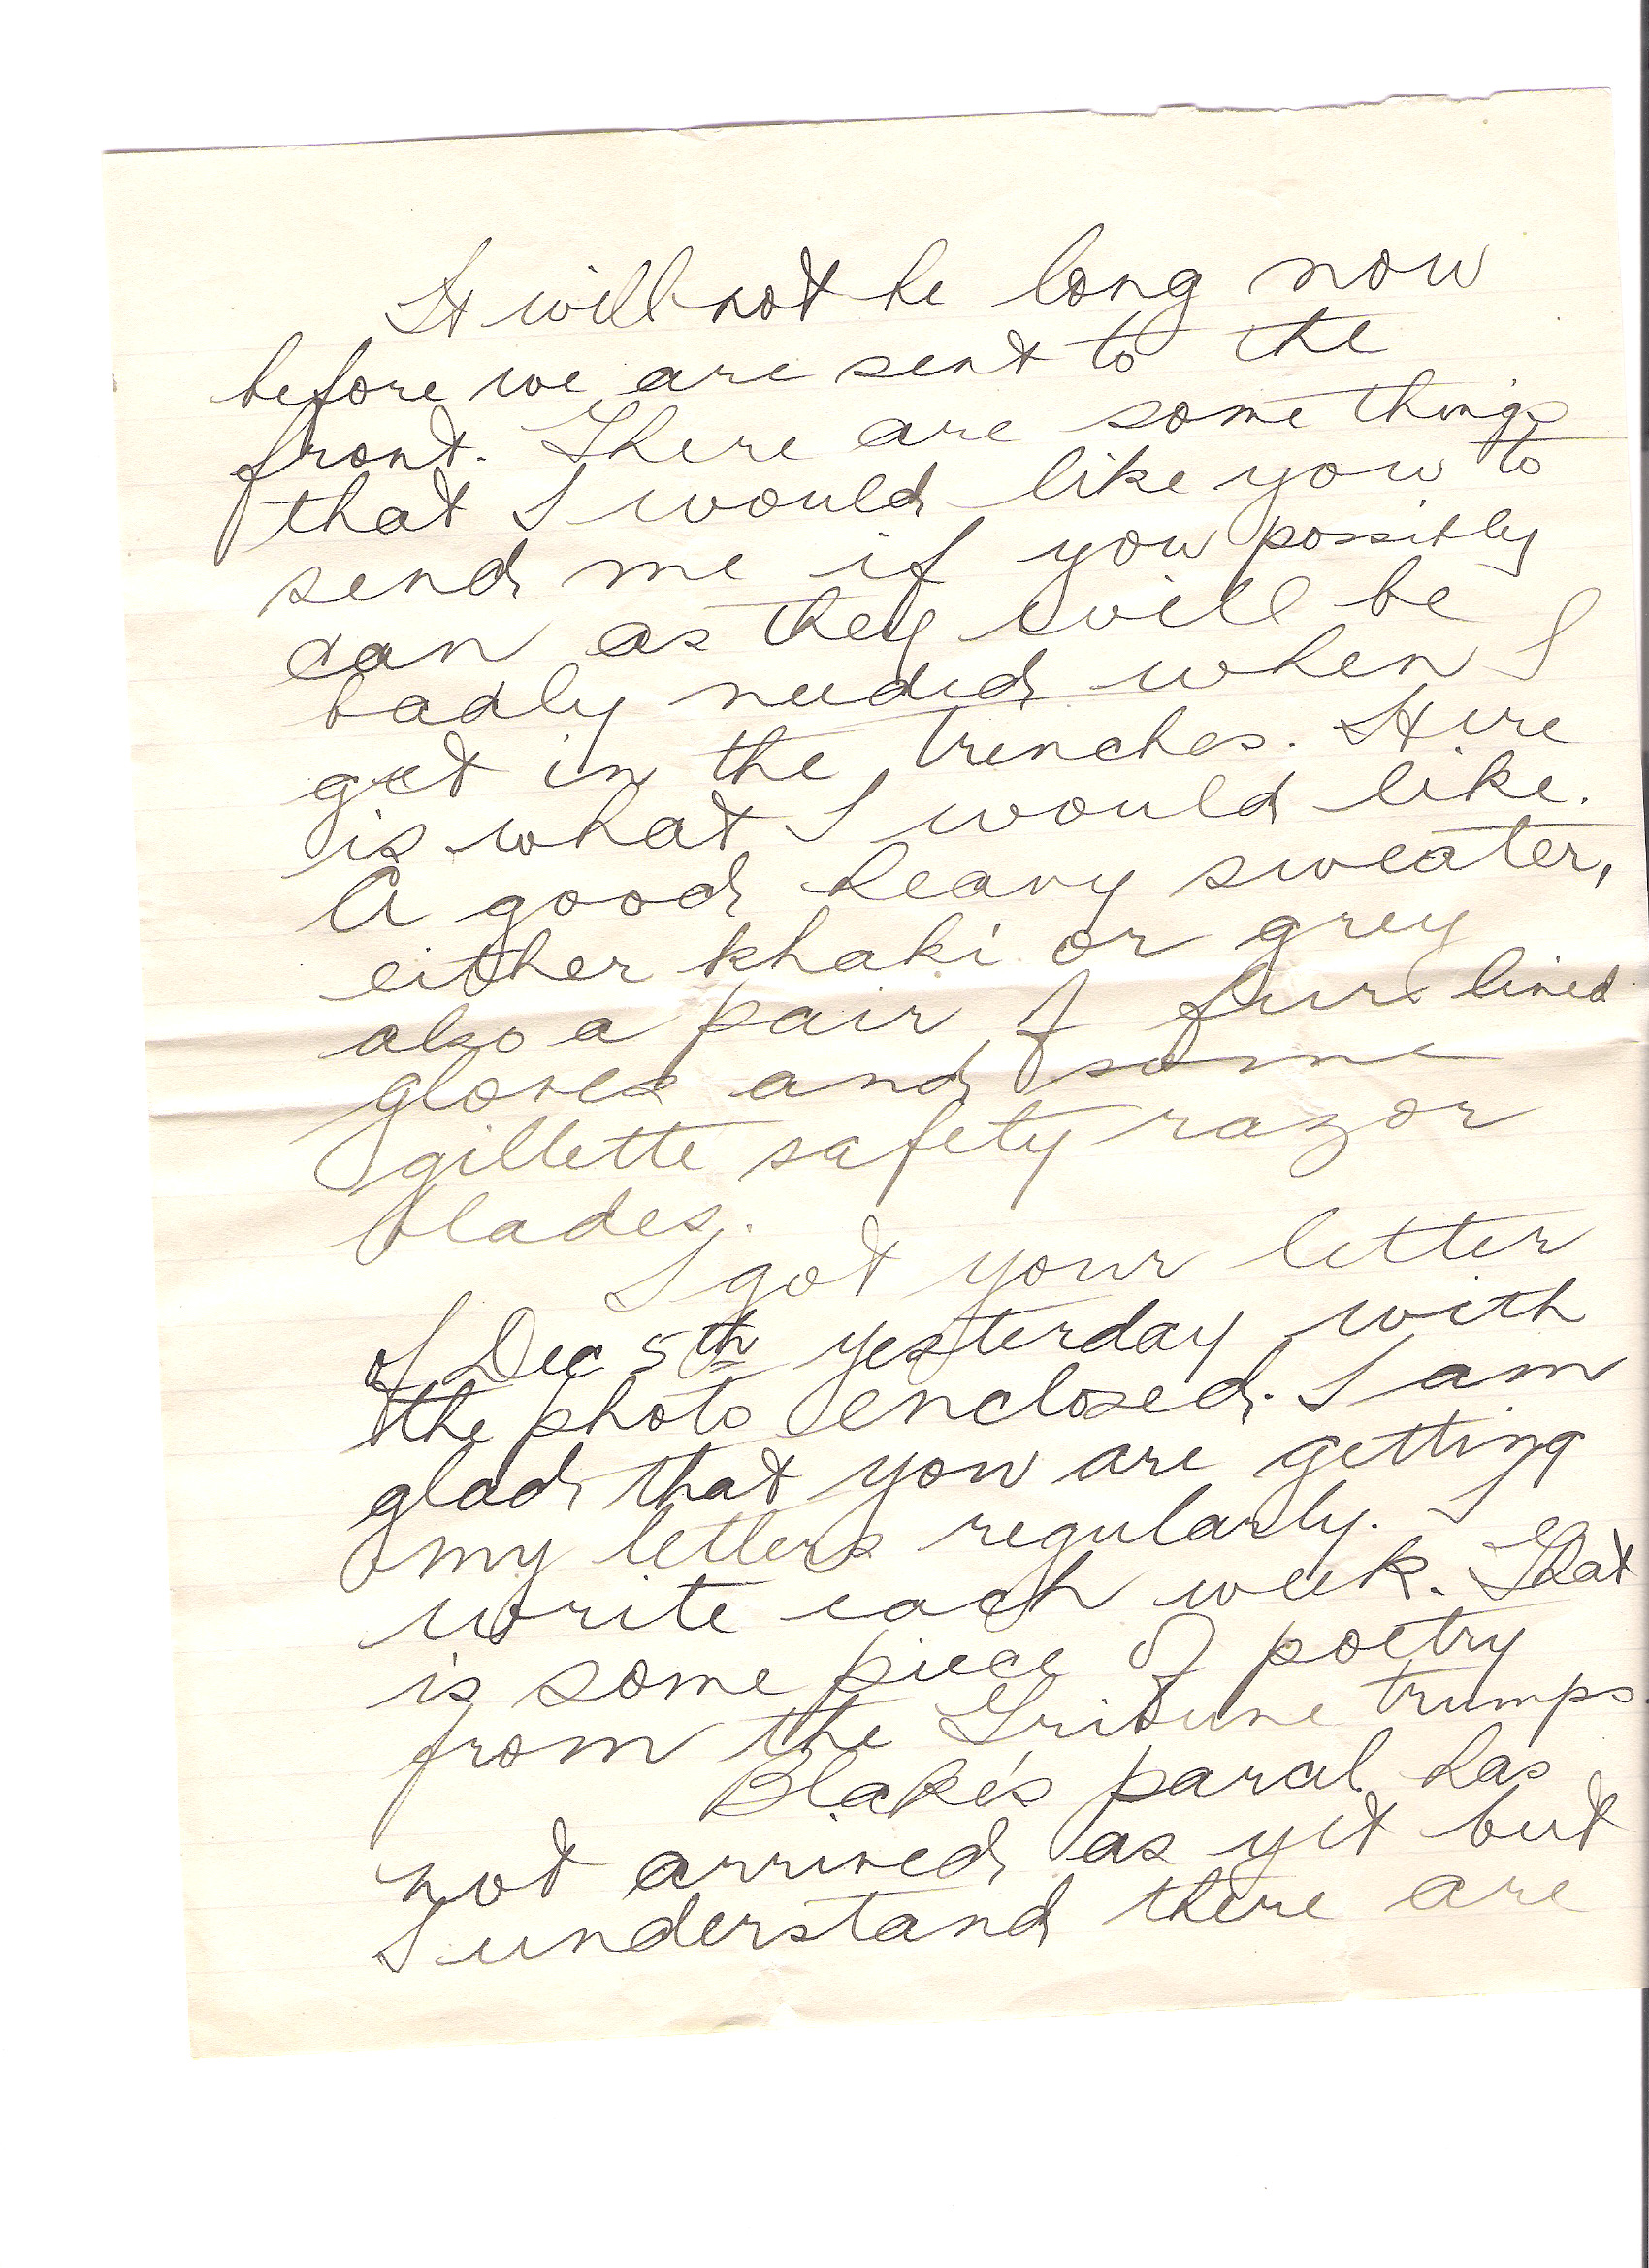 It will not be long now
before we are sent to the
front. There are some things
that I would like you to
send me if you possibly
can as they will be
badly needed when I
get in the trenches. Here
is what I would like.
A good heavy sweater,
either khaki or grey
also a pair of fur lined
gloves and some
gillette safety razor
blades.
I got your letter
of Dec 5th yesterday with
the photo enclosed. I am
glad that you are getting
my letters regularly. I
write each week. That
is some piece of poetry
from the Tribune trumps.
Blake's parcel has
not arrived as yet but
I understand there are